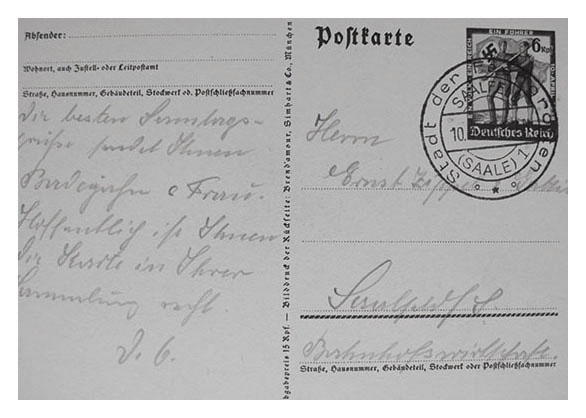 Absender:
Wohnort, auch Zustell- oder Leitpostamt
Straße, Hausnummer, Gebäudeteil, Stockwerk od. Postschließfachnummer
Die besten Sonntags-
grüße sendet Ihnen
Frau.
Hoffentlich ist Ihnen
die Karte in Ihrer
Sammlung recht.
D. G.
Bilddruck der Rückseite: Brend'amour, Simhart & Co., München
abgabepreis 15 Rpf.
Postkarte
EIN FÜHRER
6 Rpf
Deutsches Reich
Stadt der
SAALFELD
10.
(SAALE) 1
Herrn
Ernst
Saalfeld/S.
Bahnhofswirtschaft.
Straße, Hausnummer, Gebäudeteil, Stockwerk oder Postschließfachnummer